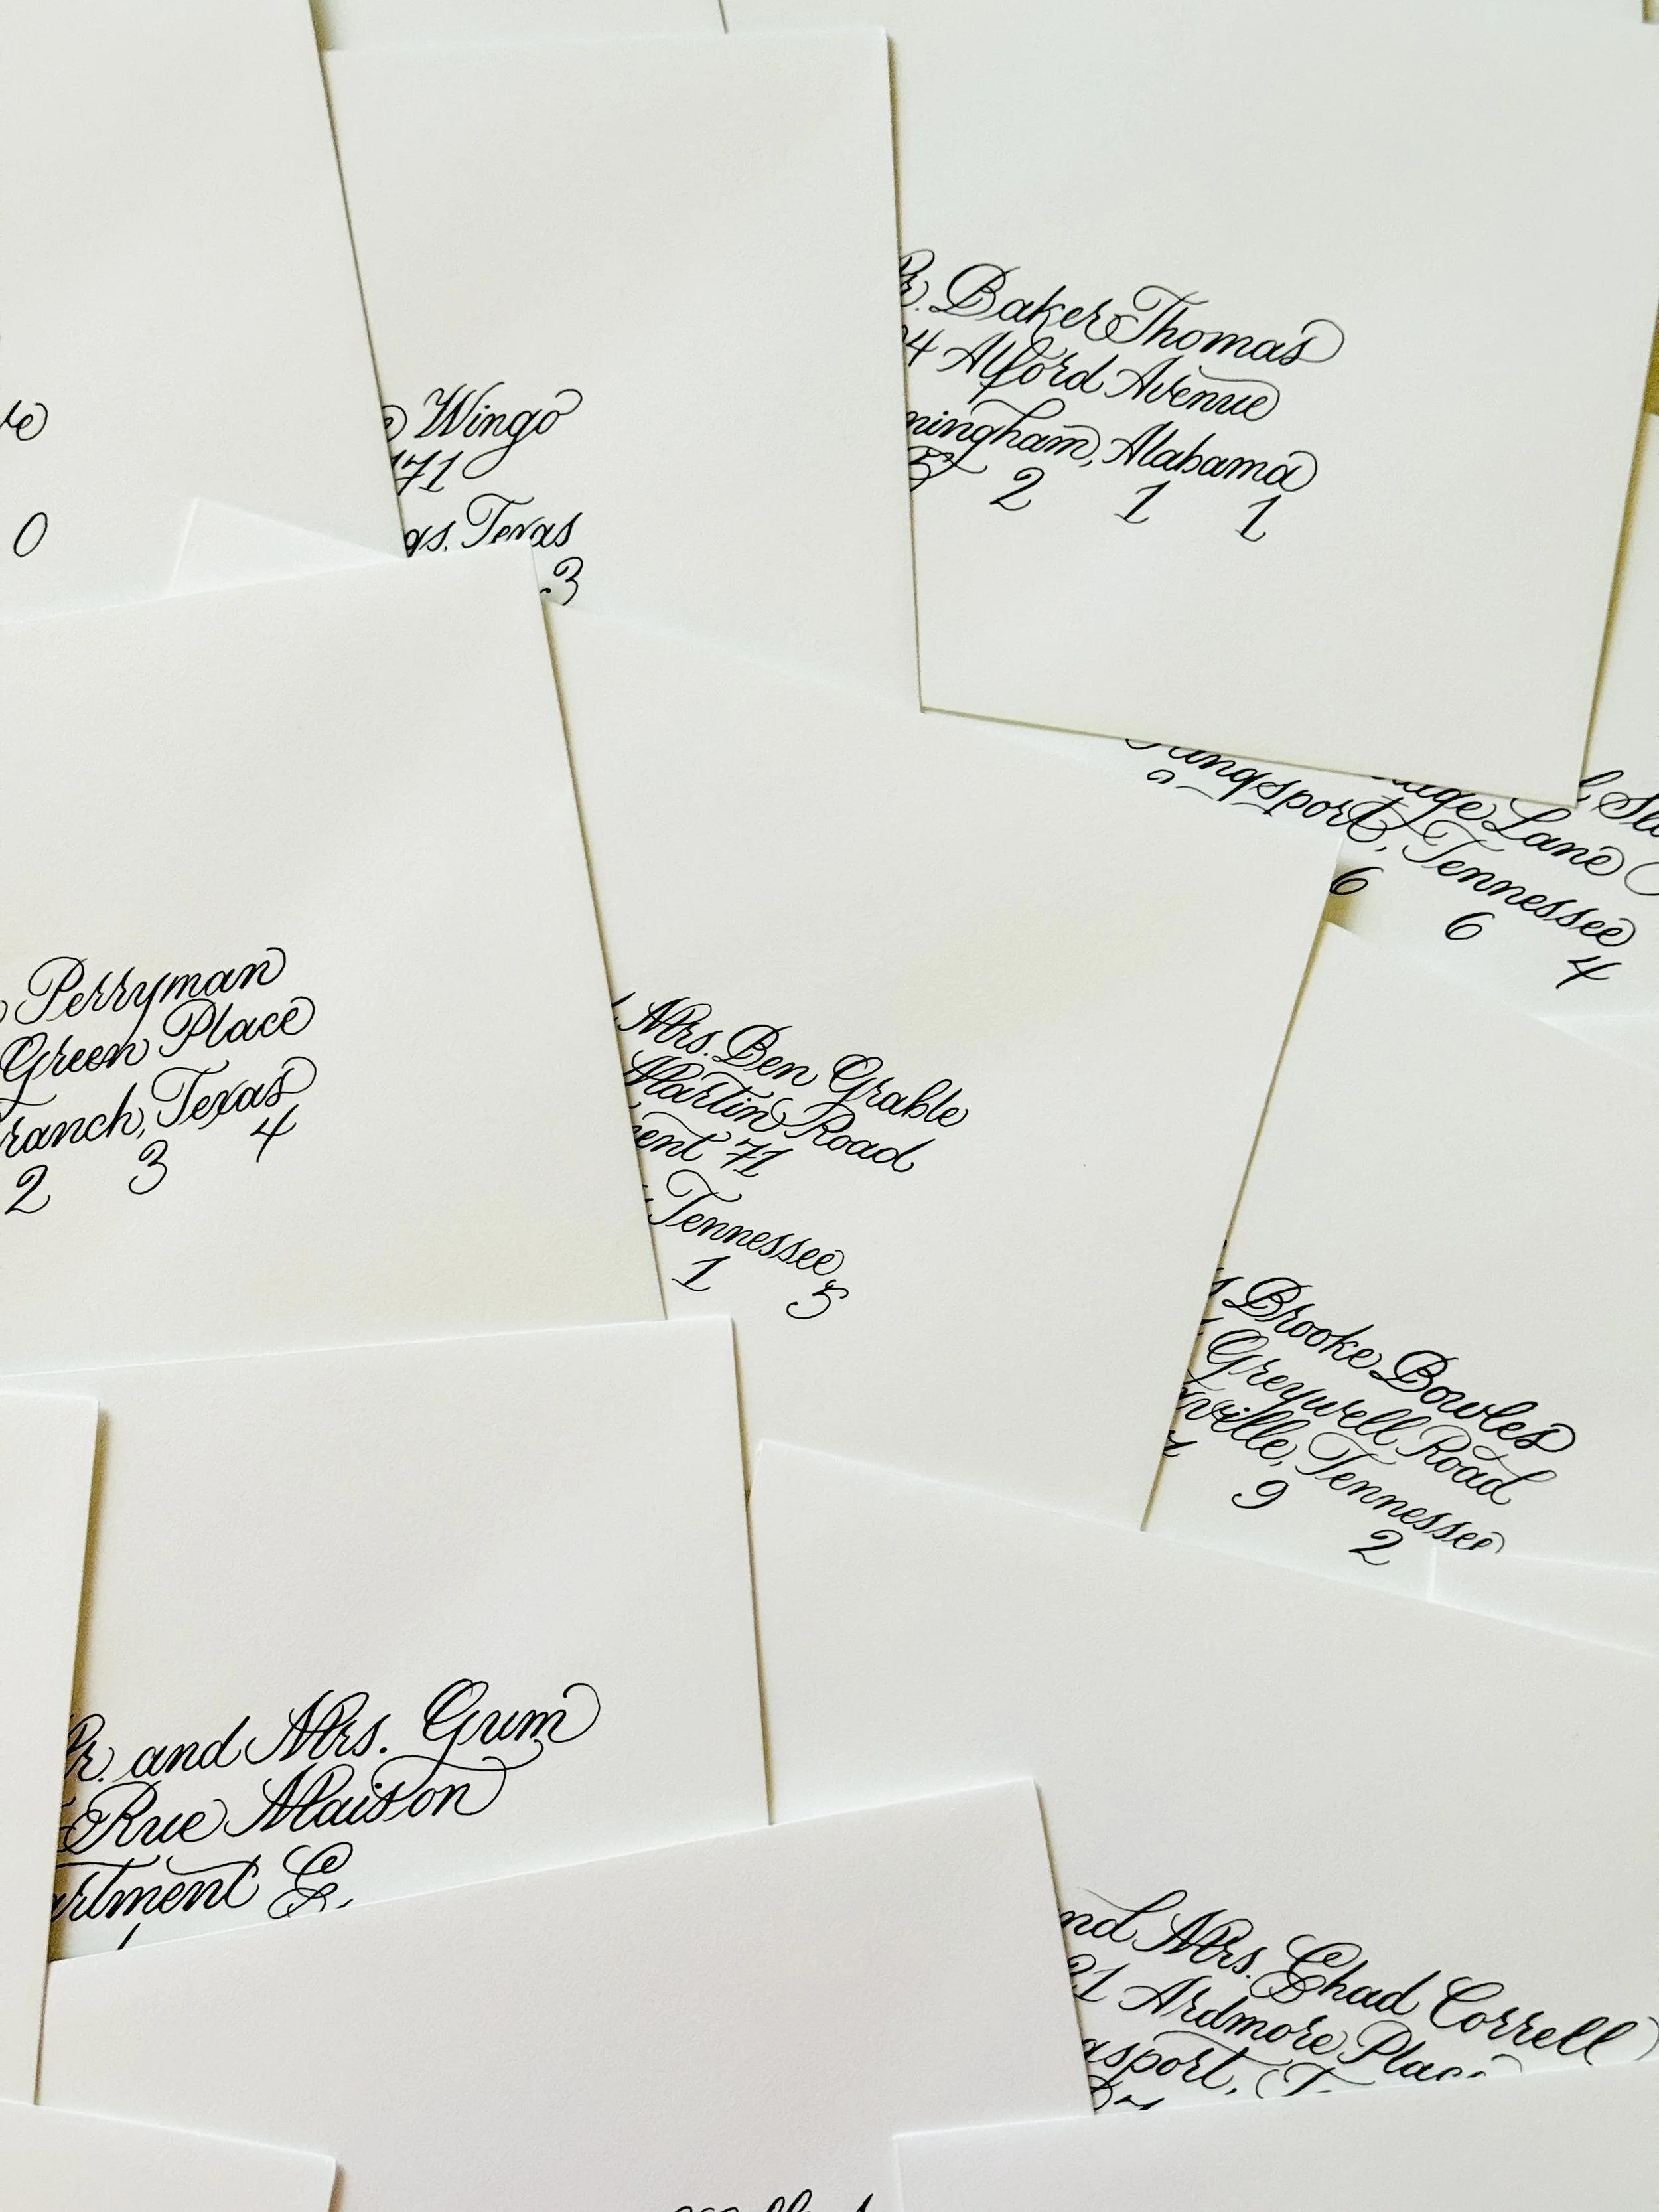 0
Wingo
171
as, Texas
3
r. Baker Thomas
4 Alford Avenue
mingham, Alabama
5 2 1 1
Lane
Kingsport, Tennessee
6 6 4
Perryman
Green Place
ranch, Texas
2 3 4
Mrs. Ben Grable
Martin Road
ent 71
Tennessee
1 5
Brooke Bowles
Greywell Road
ville, Tennessee
9 2
r. and Mrs. Gum
Rue Maison
artment C
nd Mrs. Chad Correll
21 Ardmore Place
gsport, T